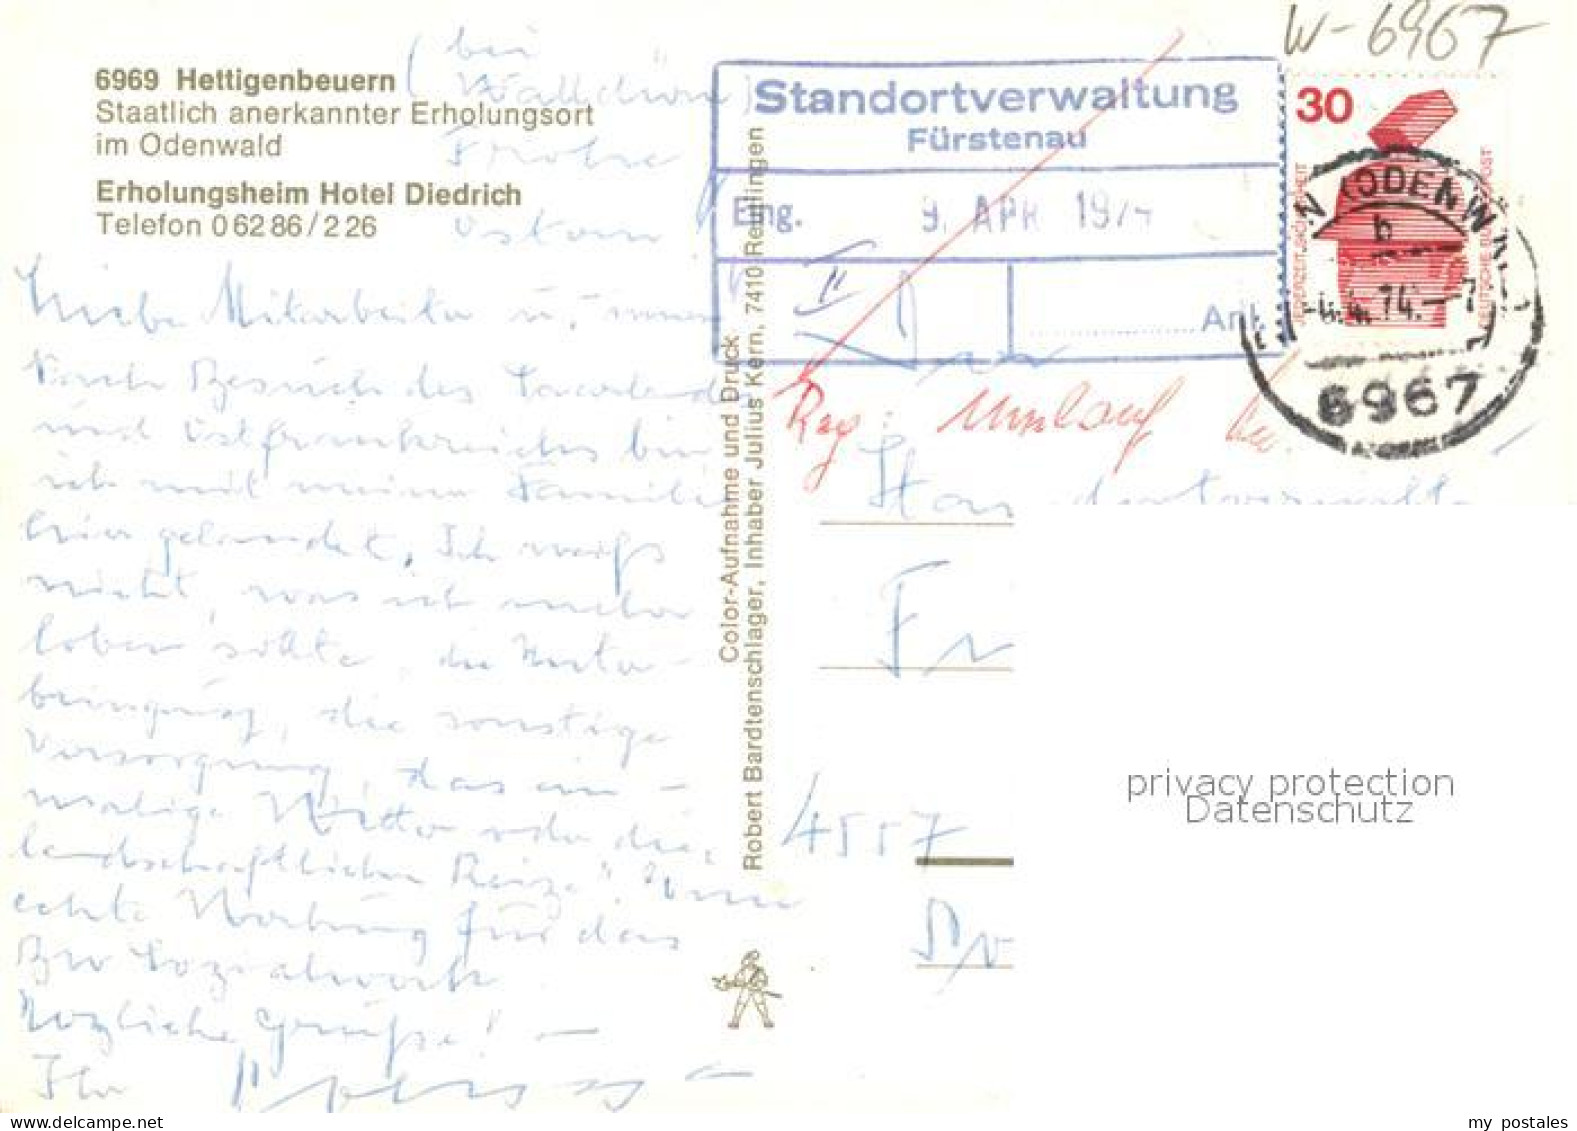 W-6967
6969 Hettigenbeuern (bei
Walldürn)
Staatlich anerkannter Erholungsort
im Odenwald
Frohe
Erholungsheim Hotel Diedrich
Telefon 06286/226
Ostern
Liebe Mitarbeiter u.
Nach Besuch des Sauerlandes
und Ostfrankreichs bin
ich mit meiner Familie
hier gelandet. Ich weiß
nicht, was ich mehr
loben sollte, die Unter-
bringung, die sonstige
Versorgung, das ein-
malige Wetter oder die
landschaftlichen Reize!
echte Werbung für das
BW Sozialwerk.
Herzliche Grüße! —
Ihr
Color-Aufnahme und Druck
Robert Bardtenschlager, Inhaber Julius Kern, 7410 Reutlingen
Standortverwaltung
Fürstenau
Eing. 9. APR 197
II
Anl.
Reg: Umlauf
30
JEDERZEIT SICHERHEIT
DEUTSCHE BUNDESPOST
(ODENW
b
74.-7
6967
4557
privacy protection
Datenschutz
my postales